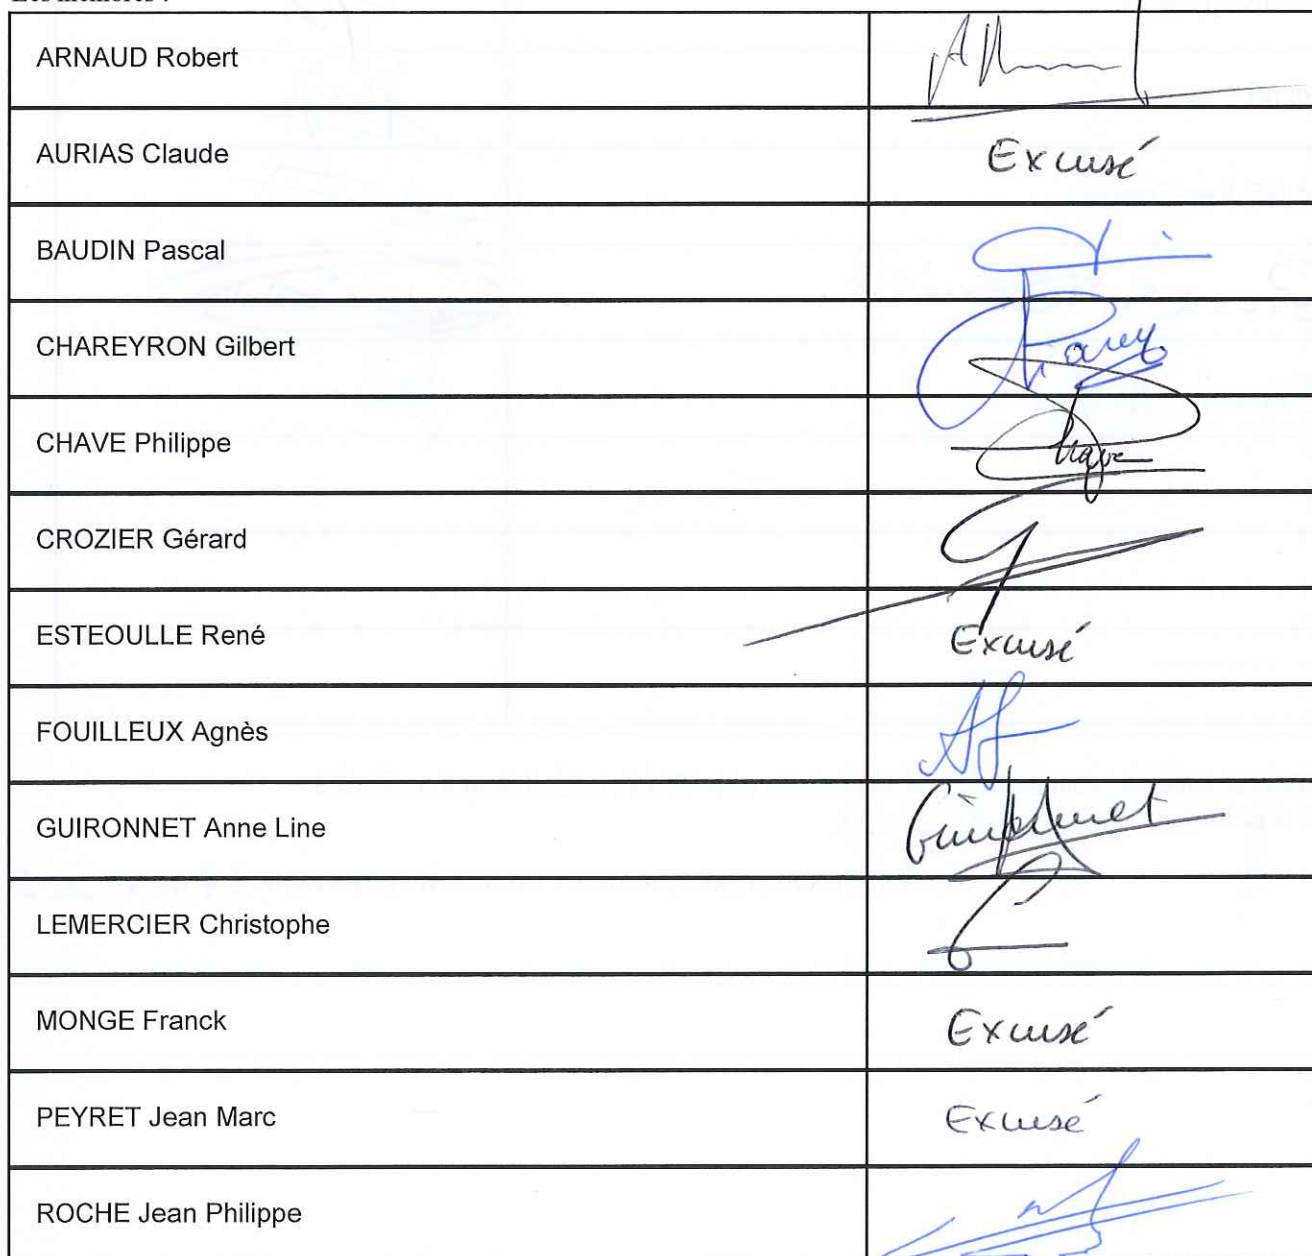 Les membres :
ARNAUD Robert
AURIAS Claude Excusé
BAUDIN Pascal
CHAREYRON Gilbert
CHAVE Philippe Chave
CROZIER Gérard
ESTEOULLE René Excusé
FOUILLEUX Agnès AF
GUIRONNET Anne Line Guironnet
LEMERCIER Christophe
MONGE Franck Excusé
PEYRET Jean Marc Excusé
ROCHE Jean Philippe